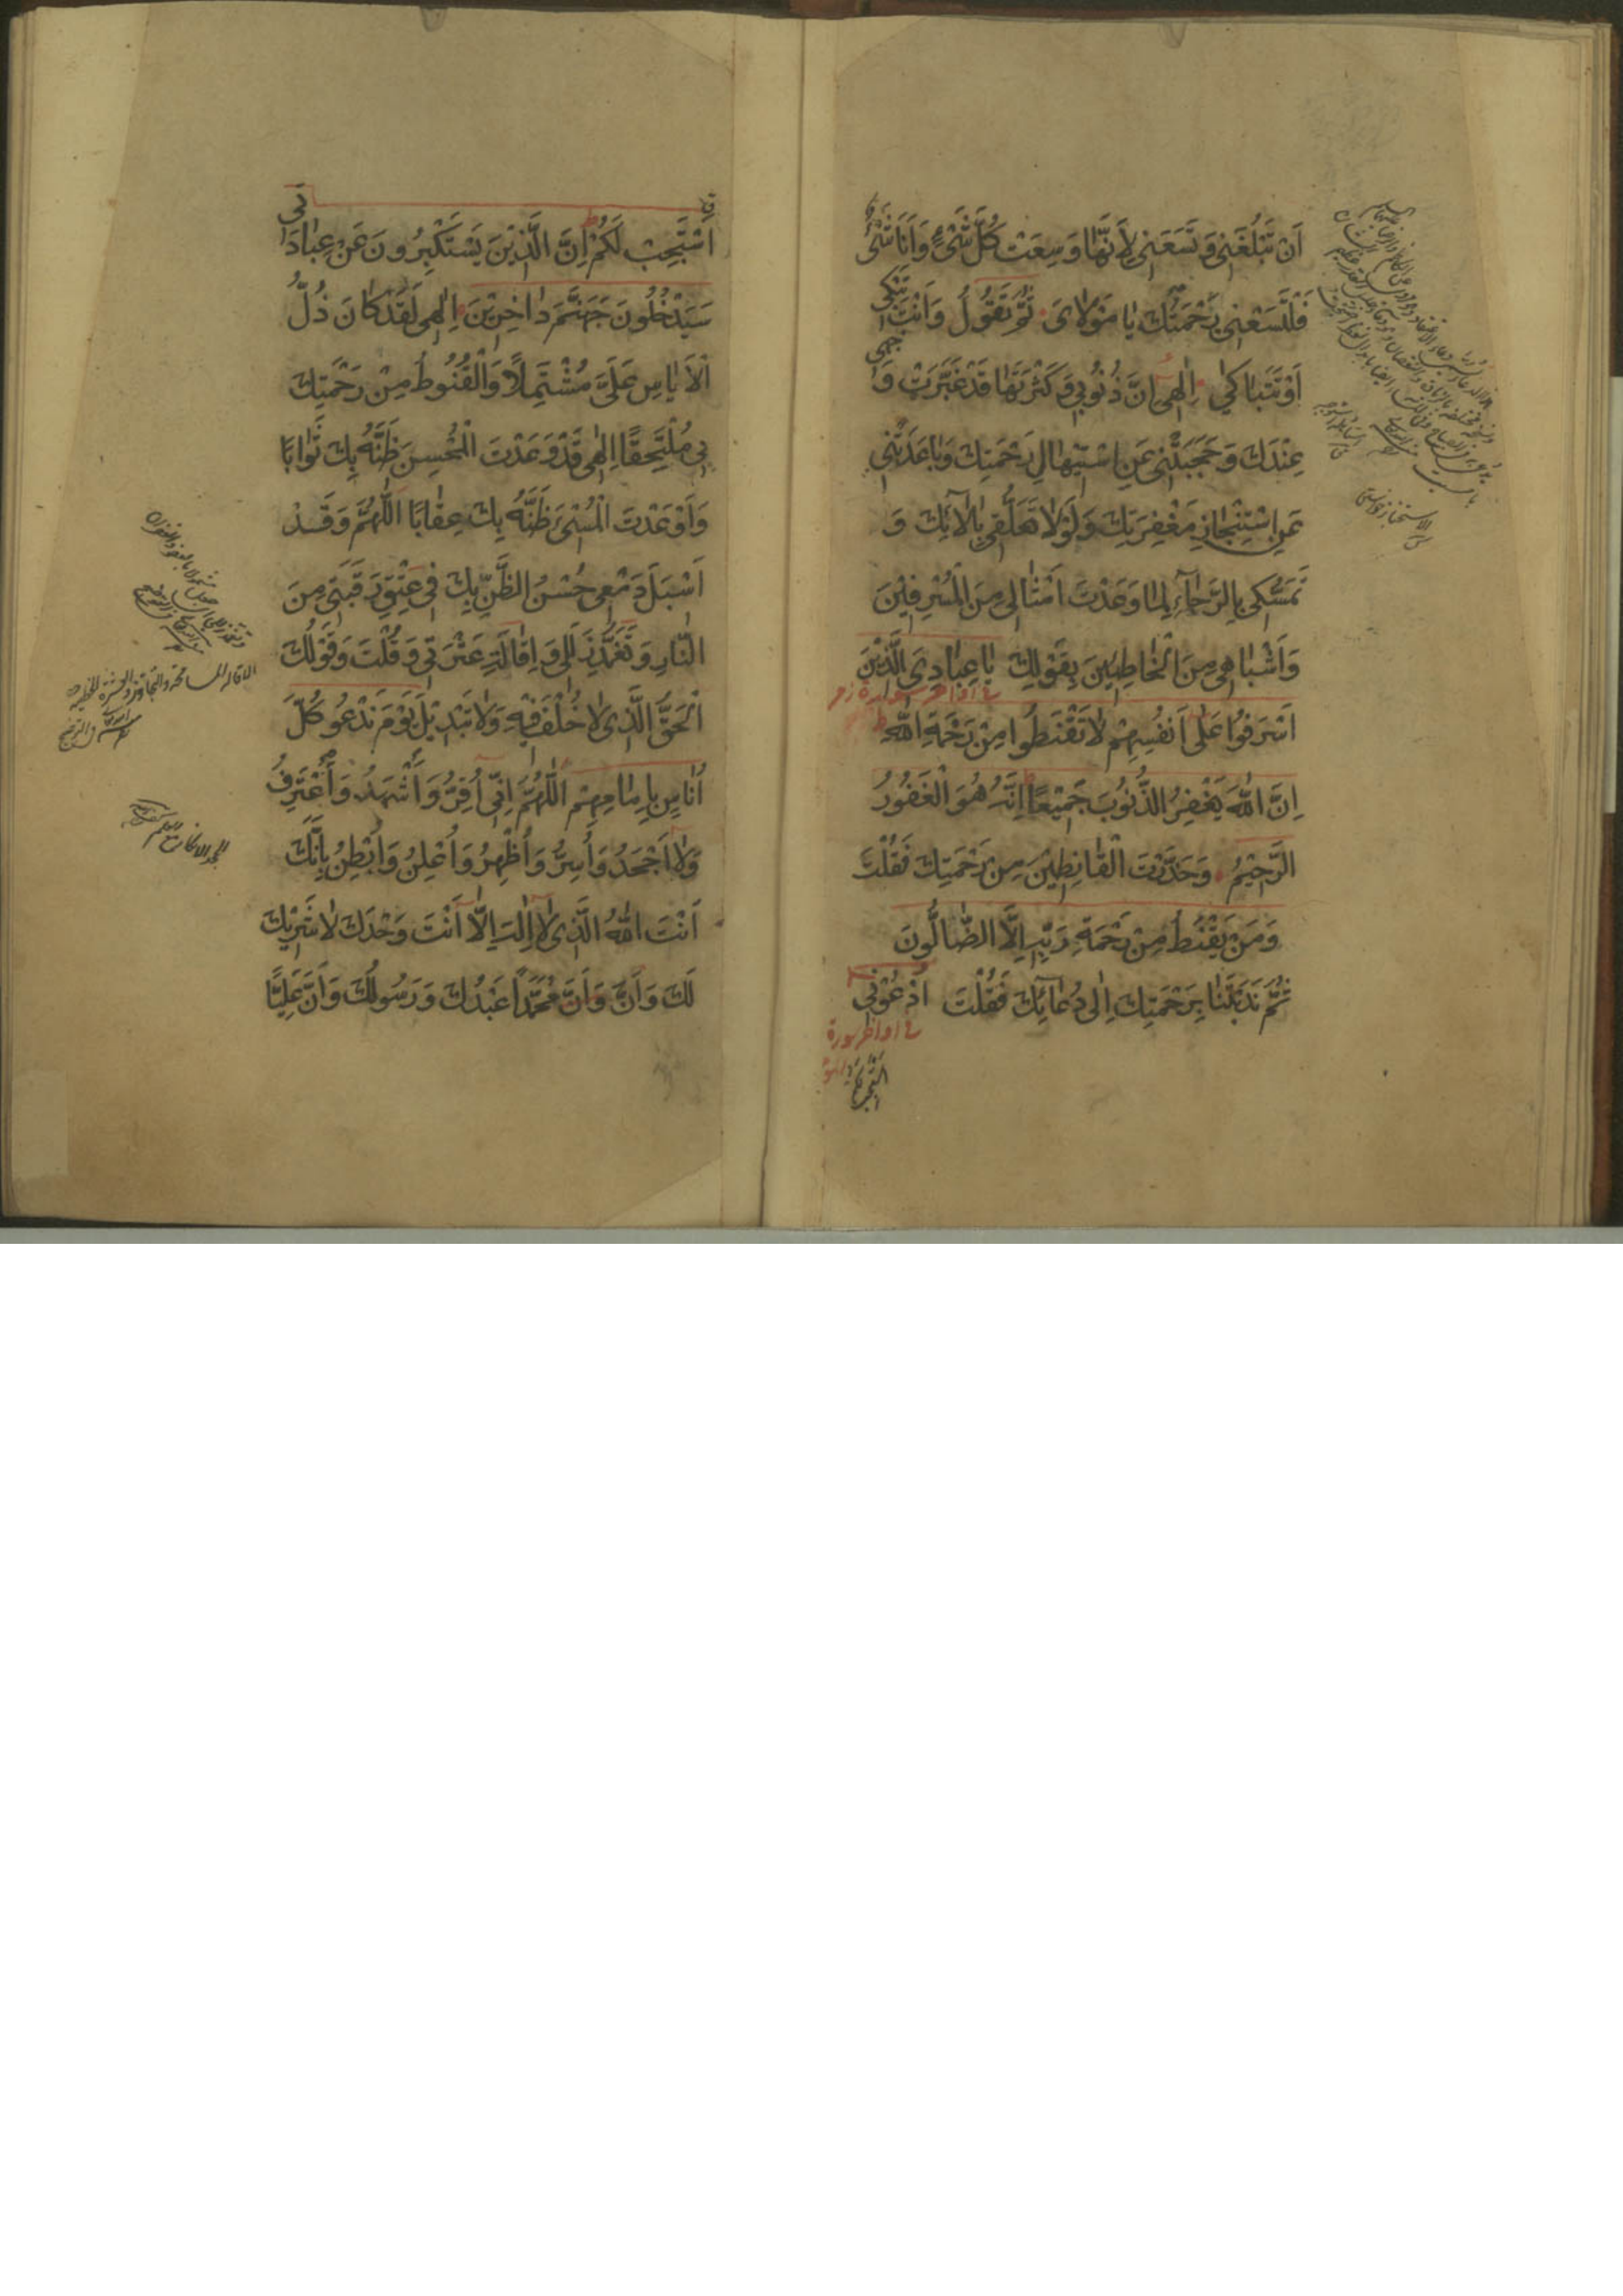 اَنْ تَبْلُغَنِي وَتَسَعَنِي لِاَنَّهَا وَسِعَتْ كُلَّ شَيْءٍ وَاَنَا شَيْءٌ
فَلْتَسَعْنِي رَحْمَتُكَ يَا مَوْلَايَ ثُمَّ تَقُولُ وَاَنْتَ تَبْكِي
اَوْ تَتَبَاكَي اِلٰهِي اِنَّ ذُنُوبِي وَكَثْرَتَهَا قَدْ غَبَّرَتْ وَجْهِي
عِنْدَكَ وَحَجَبَتْنِي عَنِ اسْتِيهَالِ رَحْمَتِكَ وَبَاعَدَتْنِي
عَنِ اسْتِنْجَازِ مَغْفِرَتِكَ وَلَوْلَا تَعَلُّقِي بِاٰلَائِكَ وَ
تَمَسُّكِي بِالرَّجَاءِ لِمَا وَعَدْتَ اَمْثَالِي مِنَ الْمُسْرِفِيْنَ
وَاَشْبَاهِي مِنَ الْخَاطِئِيْنَ بِقَوْلِكَ يَا عِبَادِيَ الَّذِيْنَ
اَسْرَفُوا عَلٰى اَنْفُسِهِمْ لَا تَقْنَطُوا مِنْ رَحْمَةِ اللّٰهِ
اِنَّ اللّٰهَ يَغْفِرُ الذُّنُوبَ جَمِيْعًا اِنَّهُ هُوَ الْغَفُورُ
الرَّحِيْمُ وَحَذَّرْتَ الْقَانِطِيْنَ مِنْ رَحْمَتِكَ فَقُلْتَ
وَمَنْ يَقْنَطُ مِنْ رَحْمَةِ رَبِّهِ اِلَّا الضَّالُّونَ
ثُمَّ نَدَبْتَنَا بِرَحْمَتِكَ اِلٰى دُعَائِكَ فَقُلْتَ اُدْعُوْنِي
اَسْتَجِبْ لَكُمْ اِنَّ الَّذِيْنَ يَسْتَكْبِرُونَ عَنْ عِبَادَتِي
سَيَدْخُلُونَ جَهَنَّمَ دَاخِرِيْنَ اِلٰهِي لَقَدْ كَانَ ذُلُّ
الْاَيَاسِ عَلَيَّ مُشْتَمِلًا وَالْقُنُوطُ مِنْ رَحْمَتِكَ
بِي مُلْتَحِقًا اِلٰهِي قَدْ وَعَدْتَ الْمُحْسِنَ ظَنَّهُ بِكَ ثَوَابًا
وَاَوْعَدْتَ الْمُسِيْءَ ظَنَّهُ بِكَ عِقَابًا اَللّٰهُمَّ وَقَدْ
اَسْبَلَ دَمْعِي حُسْنُ الظَّنِّ بِكَ فِي عِتْقِ رَقَبَتِي مِنَ
النَّارِ وَتَغَمُّدِ زَلَلِي وَاِقَالَةِ عَثْرَتِي وَقُلْتَ وَقَوْلُكَ
الْحَقُّ الَّذِي لَا خُلْفَ فِيْهِ وَلَا تَبْدِيْلَ يَوْمَ نَدْعُو كُلَّ
اُنَاسٍ بِاِمَامِهِمْ اَللّٰهُمَّ اِنِّي اُقِرُّ وَاَشْهَدُ وَاَعْتَرِفُ
وَلَا اَجْحَدُ وَاُسِرُّ وَاُظْهِرُ وَاُعْلِنُ وَاُبْطِنُ بِاَنَّكَ
اَنْتَ اللّٰهُ الَّذِي لَا اِلٰهَ اِلَّا اَنْتَ وَحْدَكَ لَا شَرِيْكَ
لَكَ وَاَنَّ وَاَنَّ مُحَمَّدًا عَبْدُكَ وَرَسُولُكَ وَاَنَّ عَلِيًّا